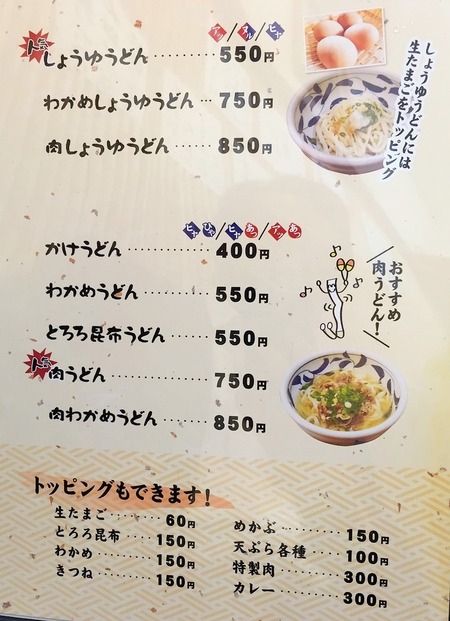 アツ/ヌル/ヒヤ
人気 しょうゆうどん 550円
わかめしょうゆうどん 750円
肉しょうゆうどん 850円
しょうゆうどんには
生たまごをトッピング
ヒヤ ひや/ヒヤ あつ/アツ あつ
かけうどん 400円
わかめうどん 550円
とろろ昆布うどん 550円
人気 肉うどん 750円
肉わかめうどん 850円
おすすめ
肉うどん!
トッピングもできます!
生たまご 60円
とろろ昆布 150円
わかめ 150円
きつね 150円
めかぶ 150円
天ぷら各種 100円
特製肉 300円
カレー 300円